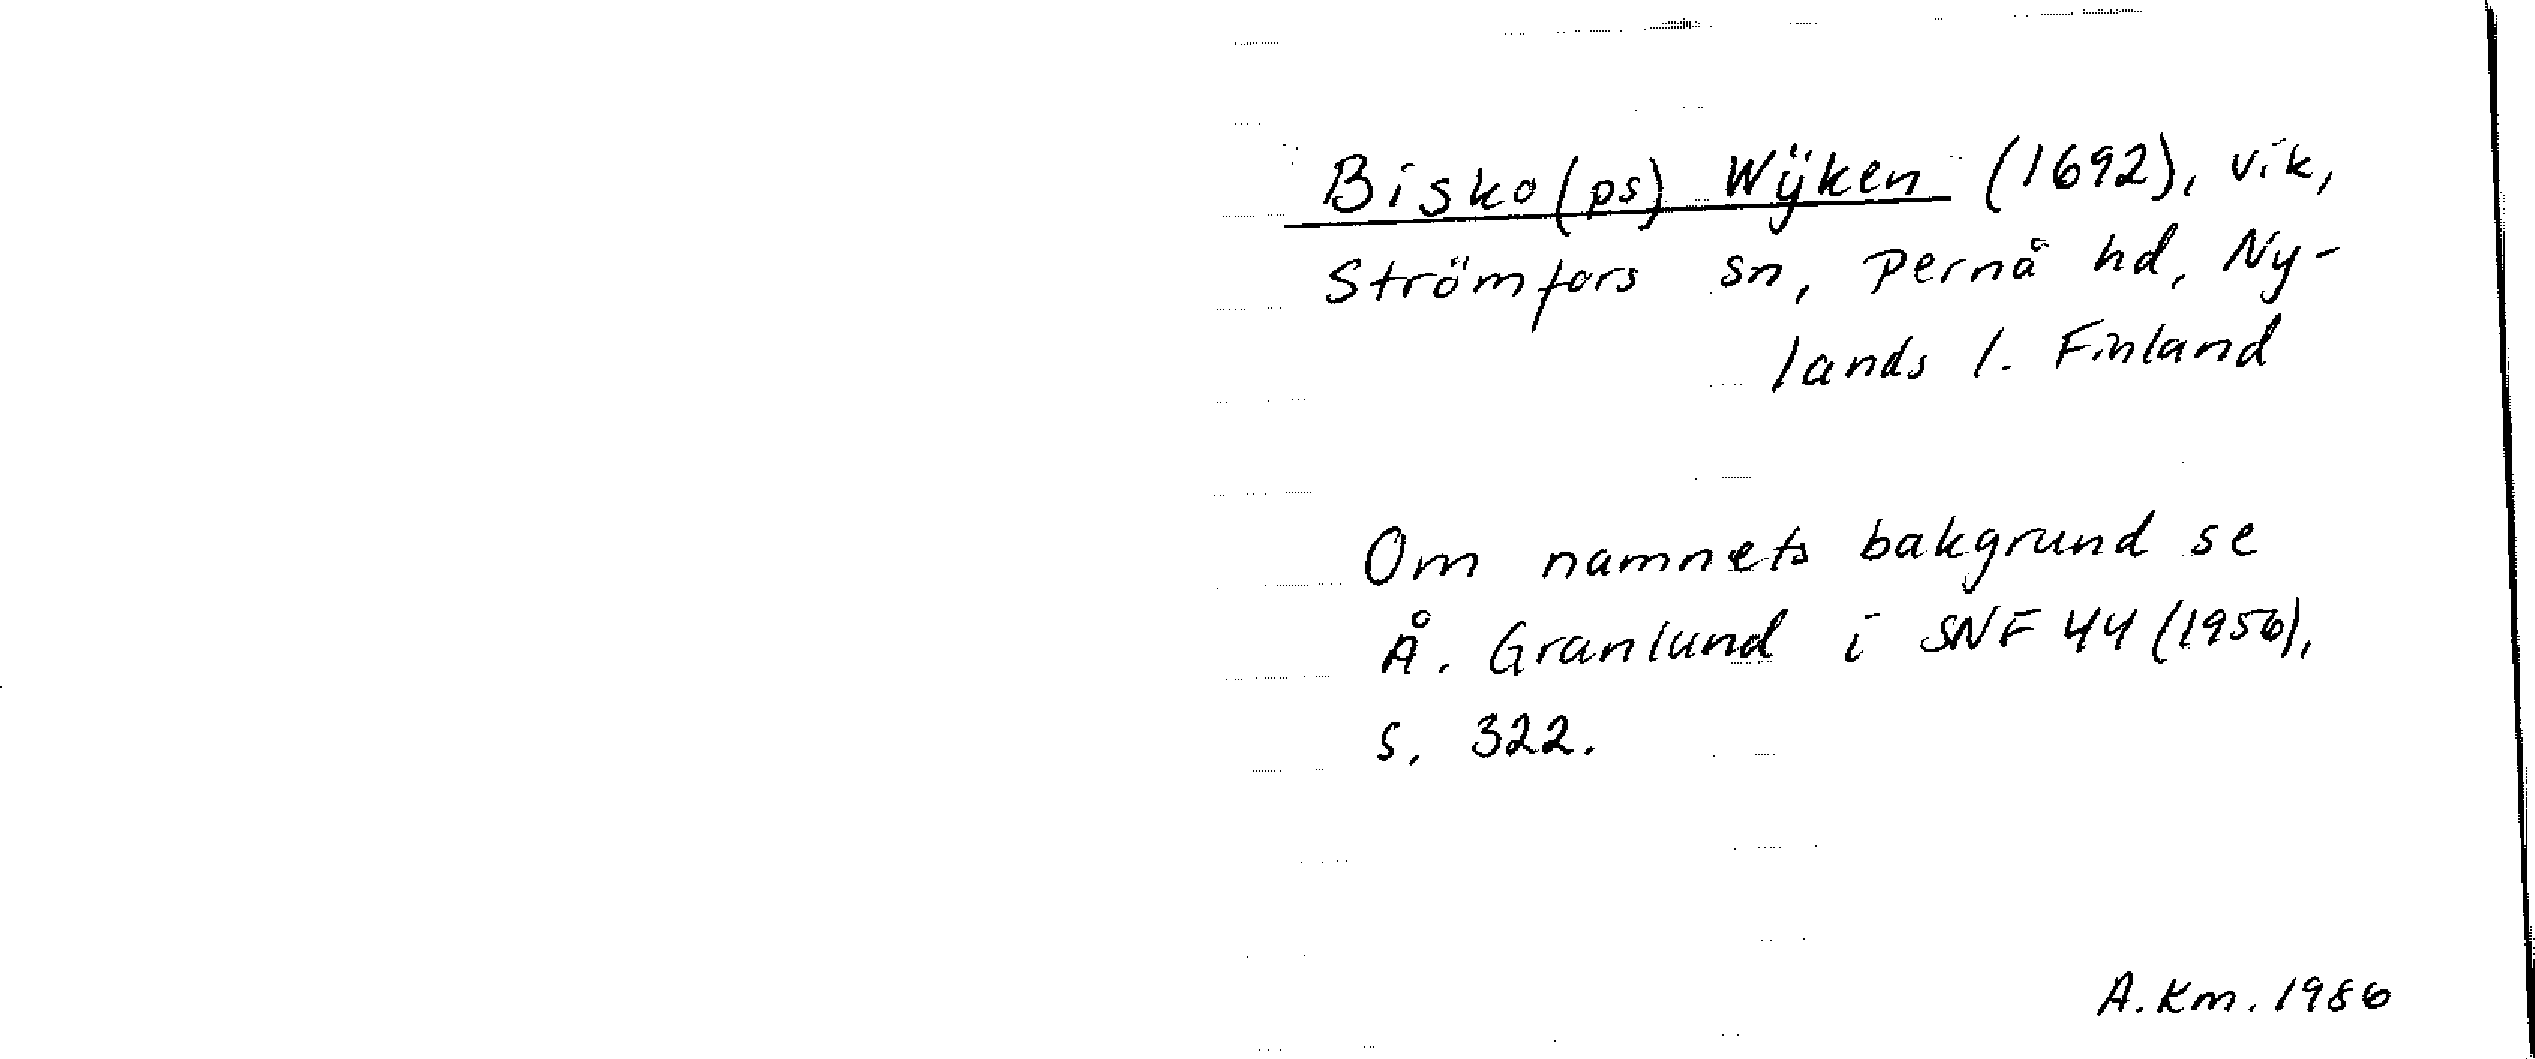 Bisko(ps) Wÿken (1692), vik,
Strömfors sn, Pernå hd, Ny-
lands l. Finland
Om namnets bakgrund se
Å. Granlund i SNF 44 (1956),
s. 322.
A. Km. 1986